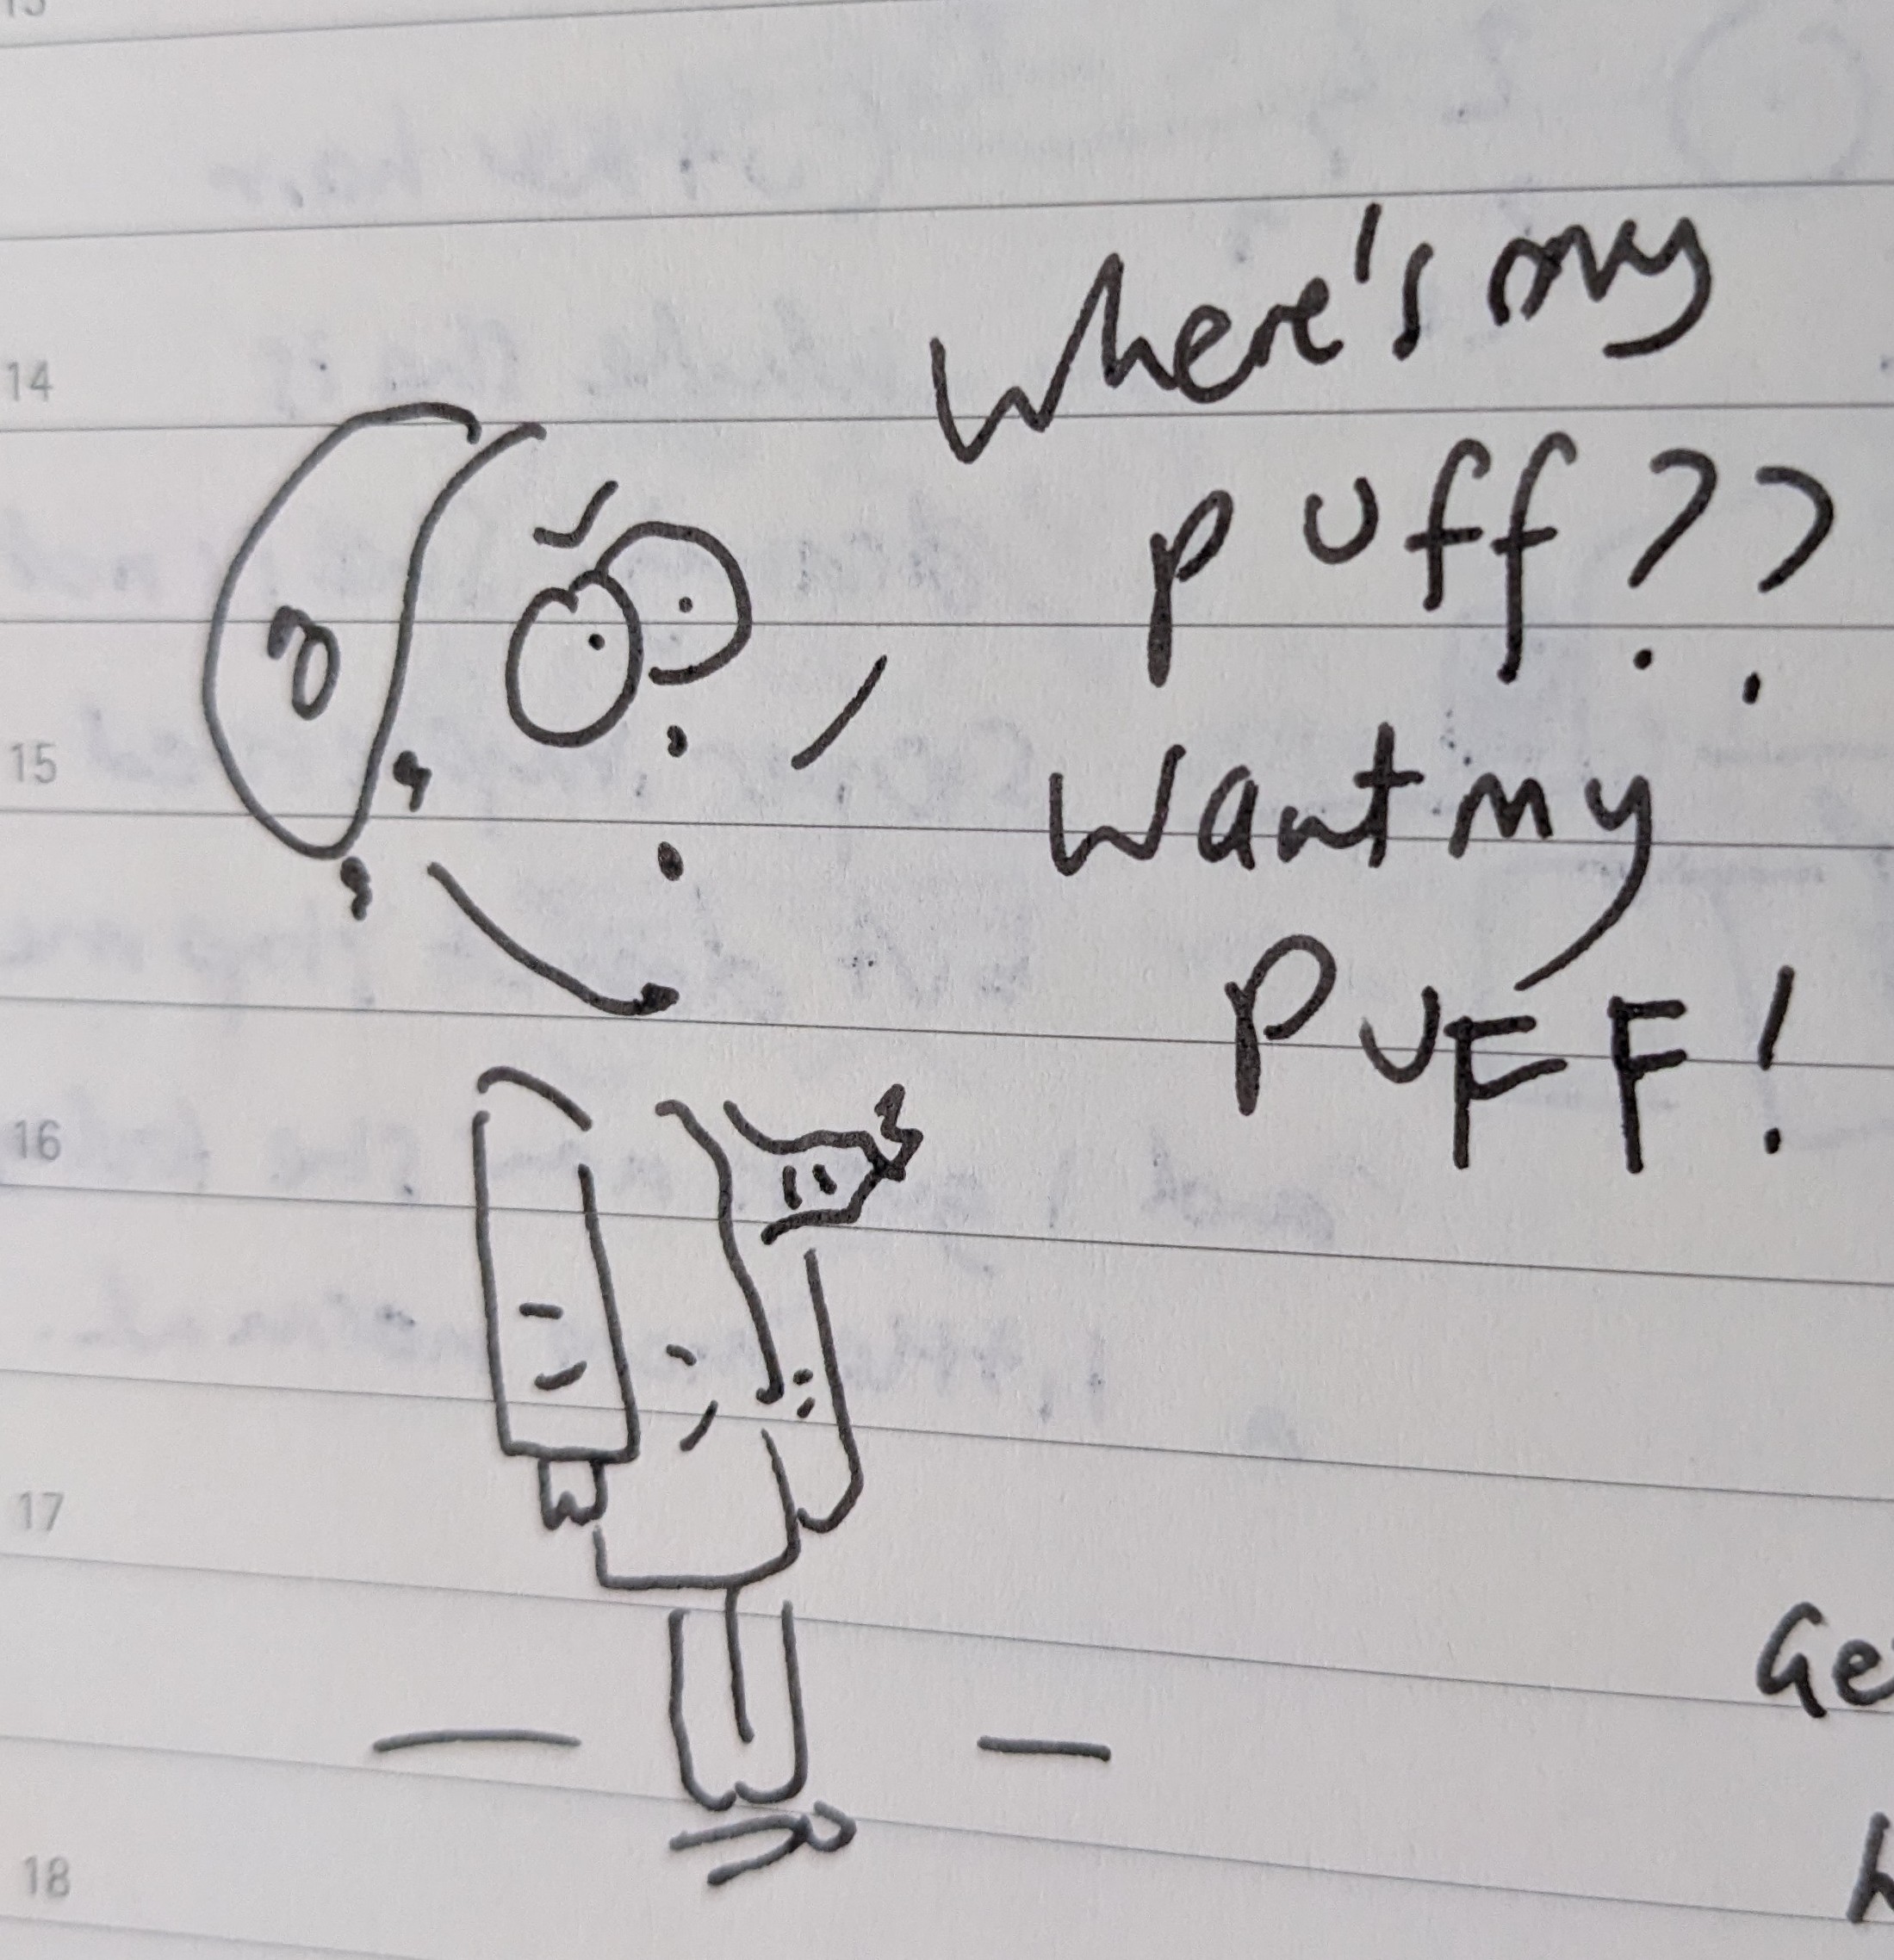 14
where's my
puff??
want my
PUFF!
15
16
17
18